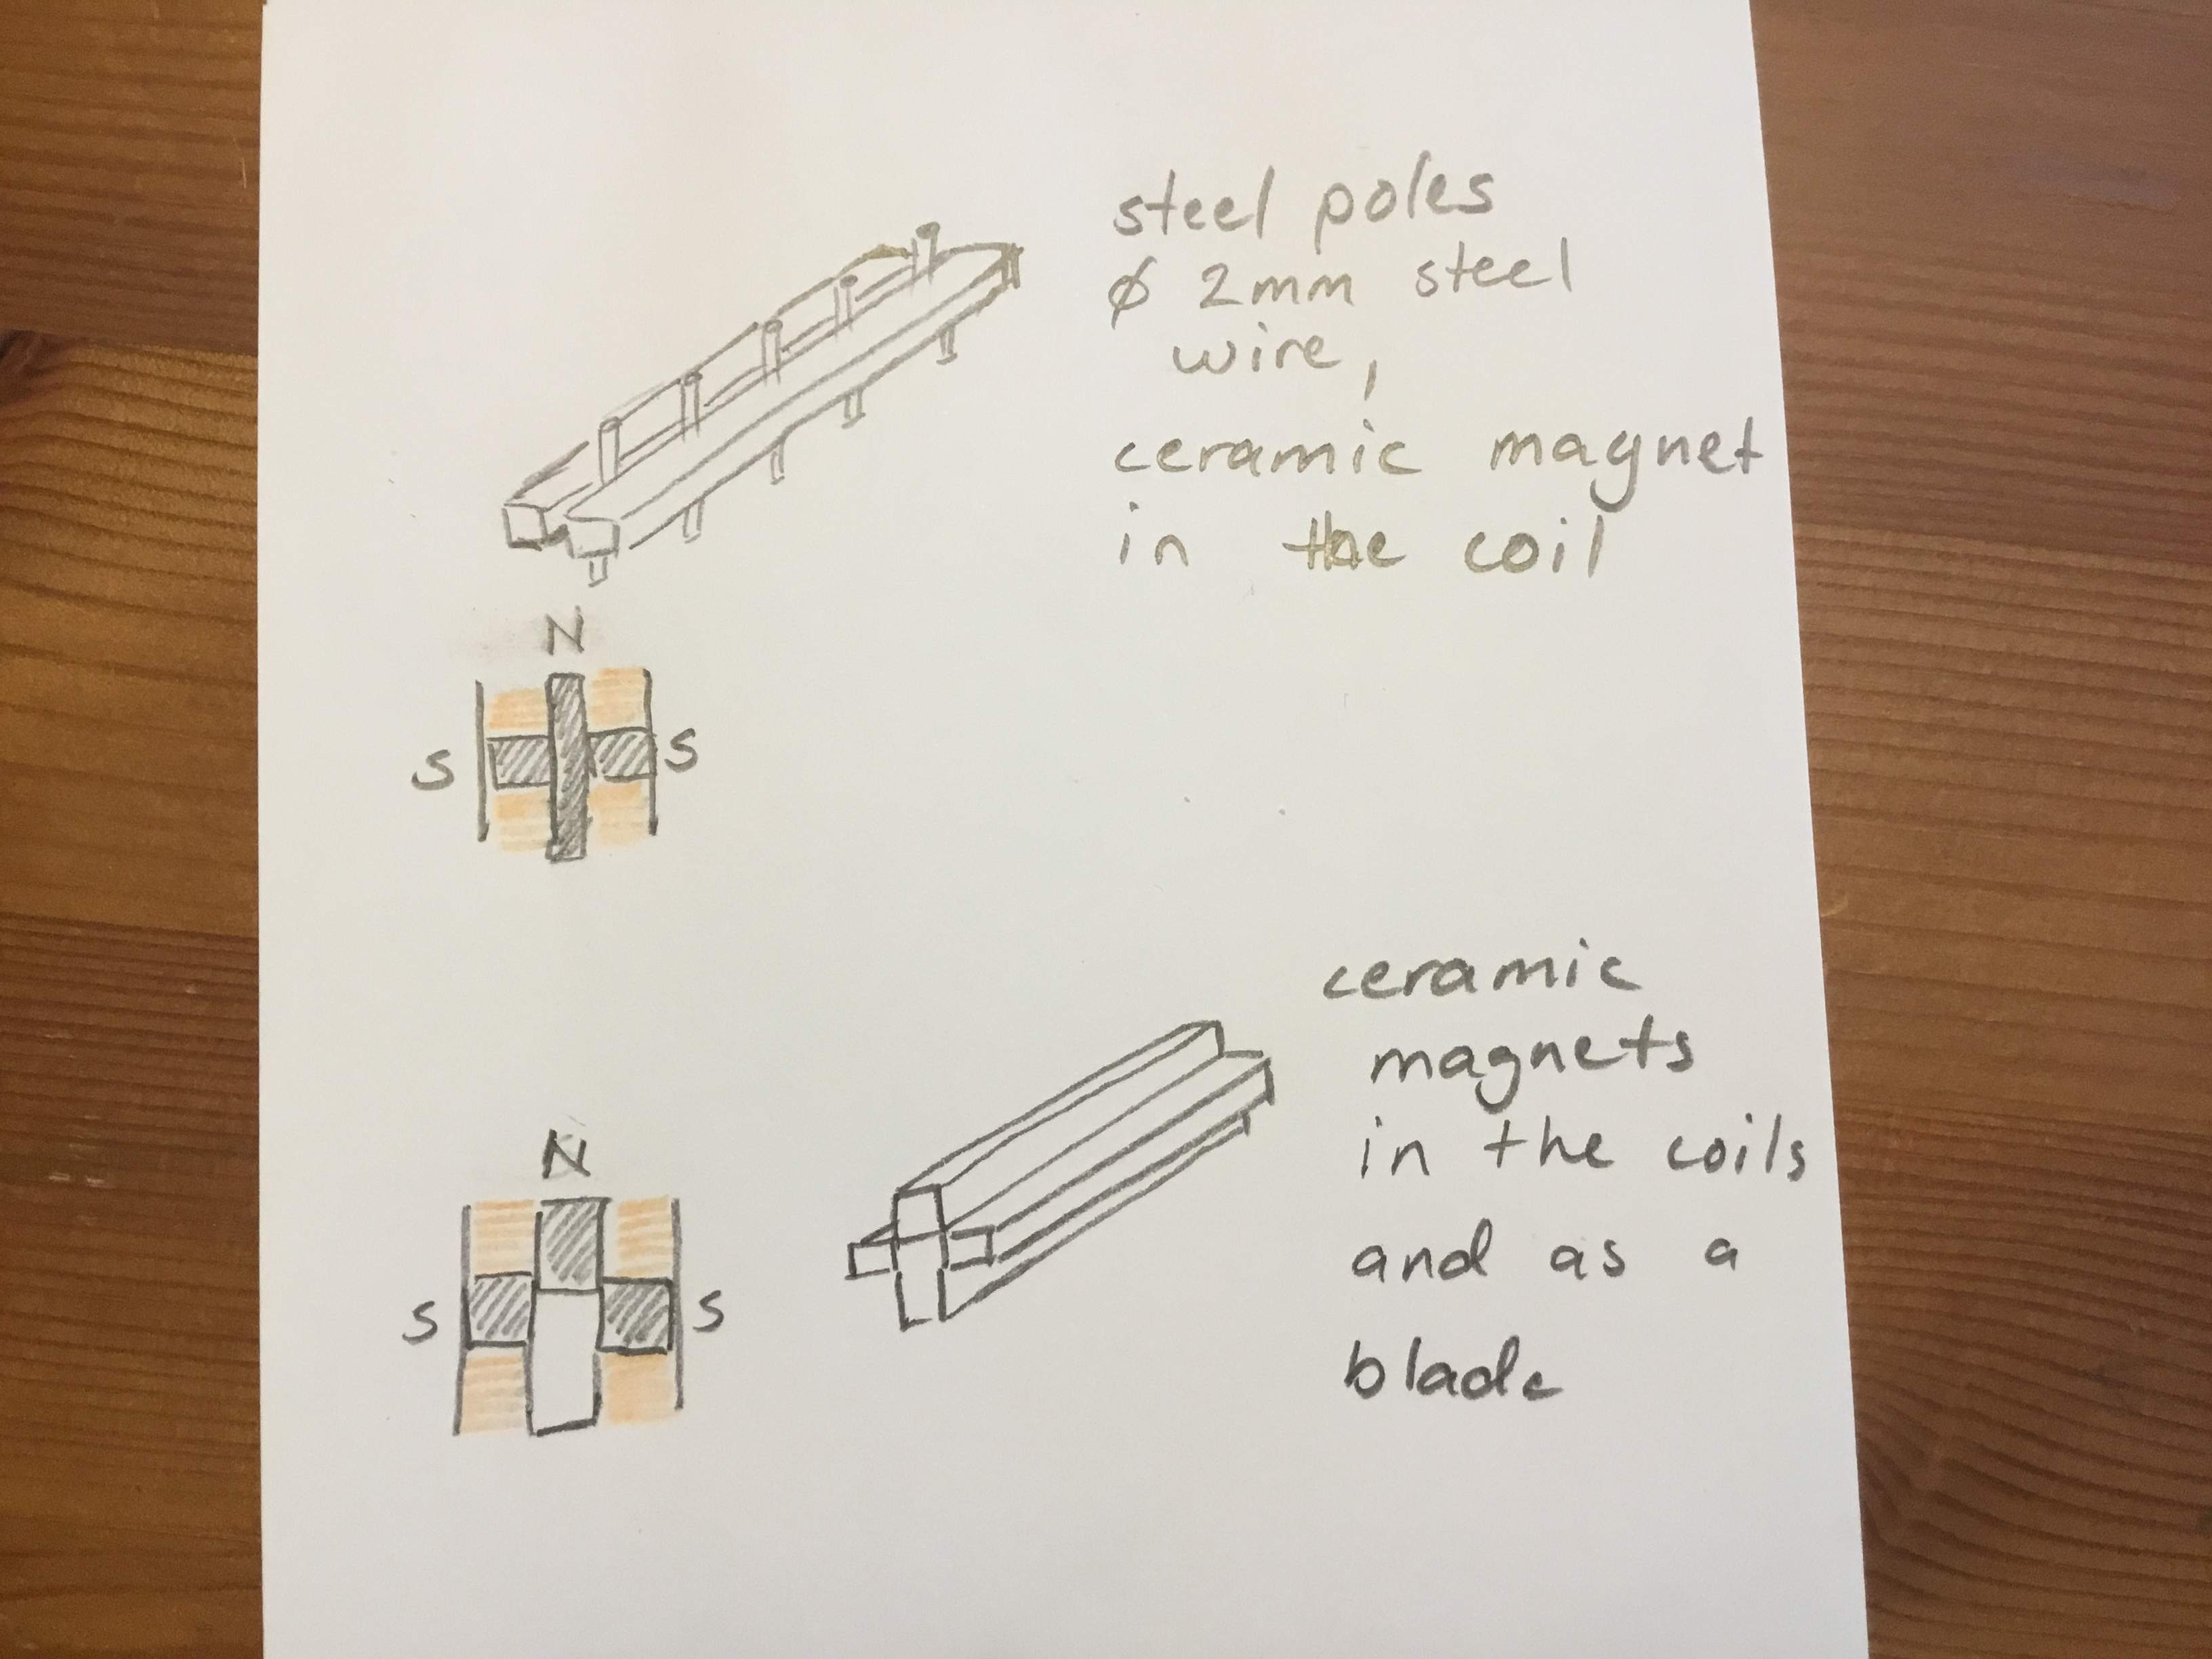 steel poles
ø 2mm steel
wire,
ceramic magnet
in the coil
N
S S
ceramic
magnets
in the coils
and as a
blade
N
S S